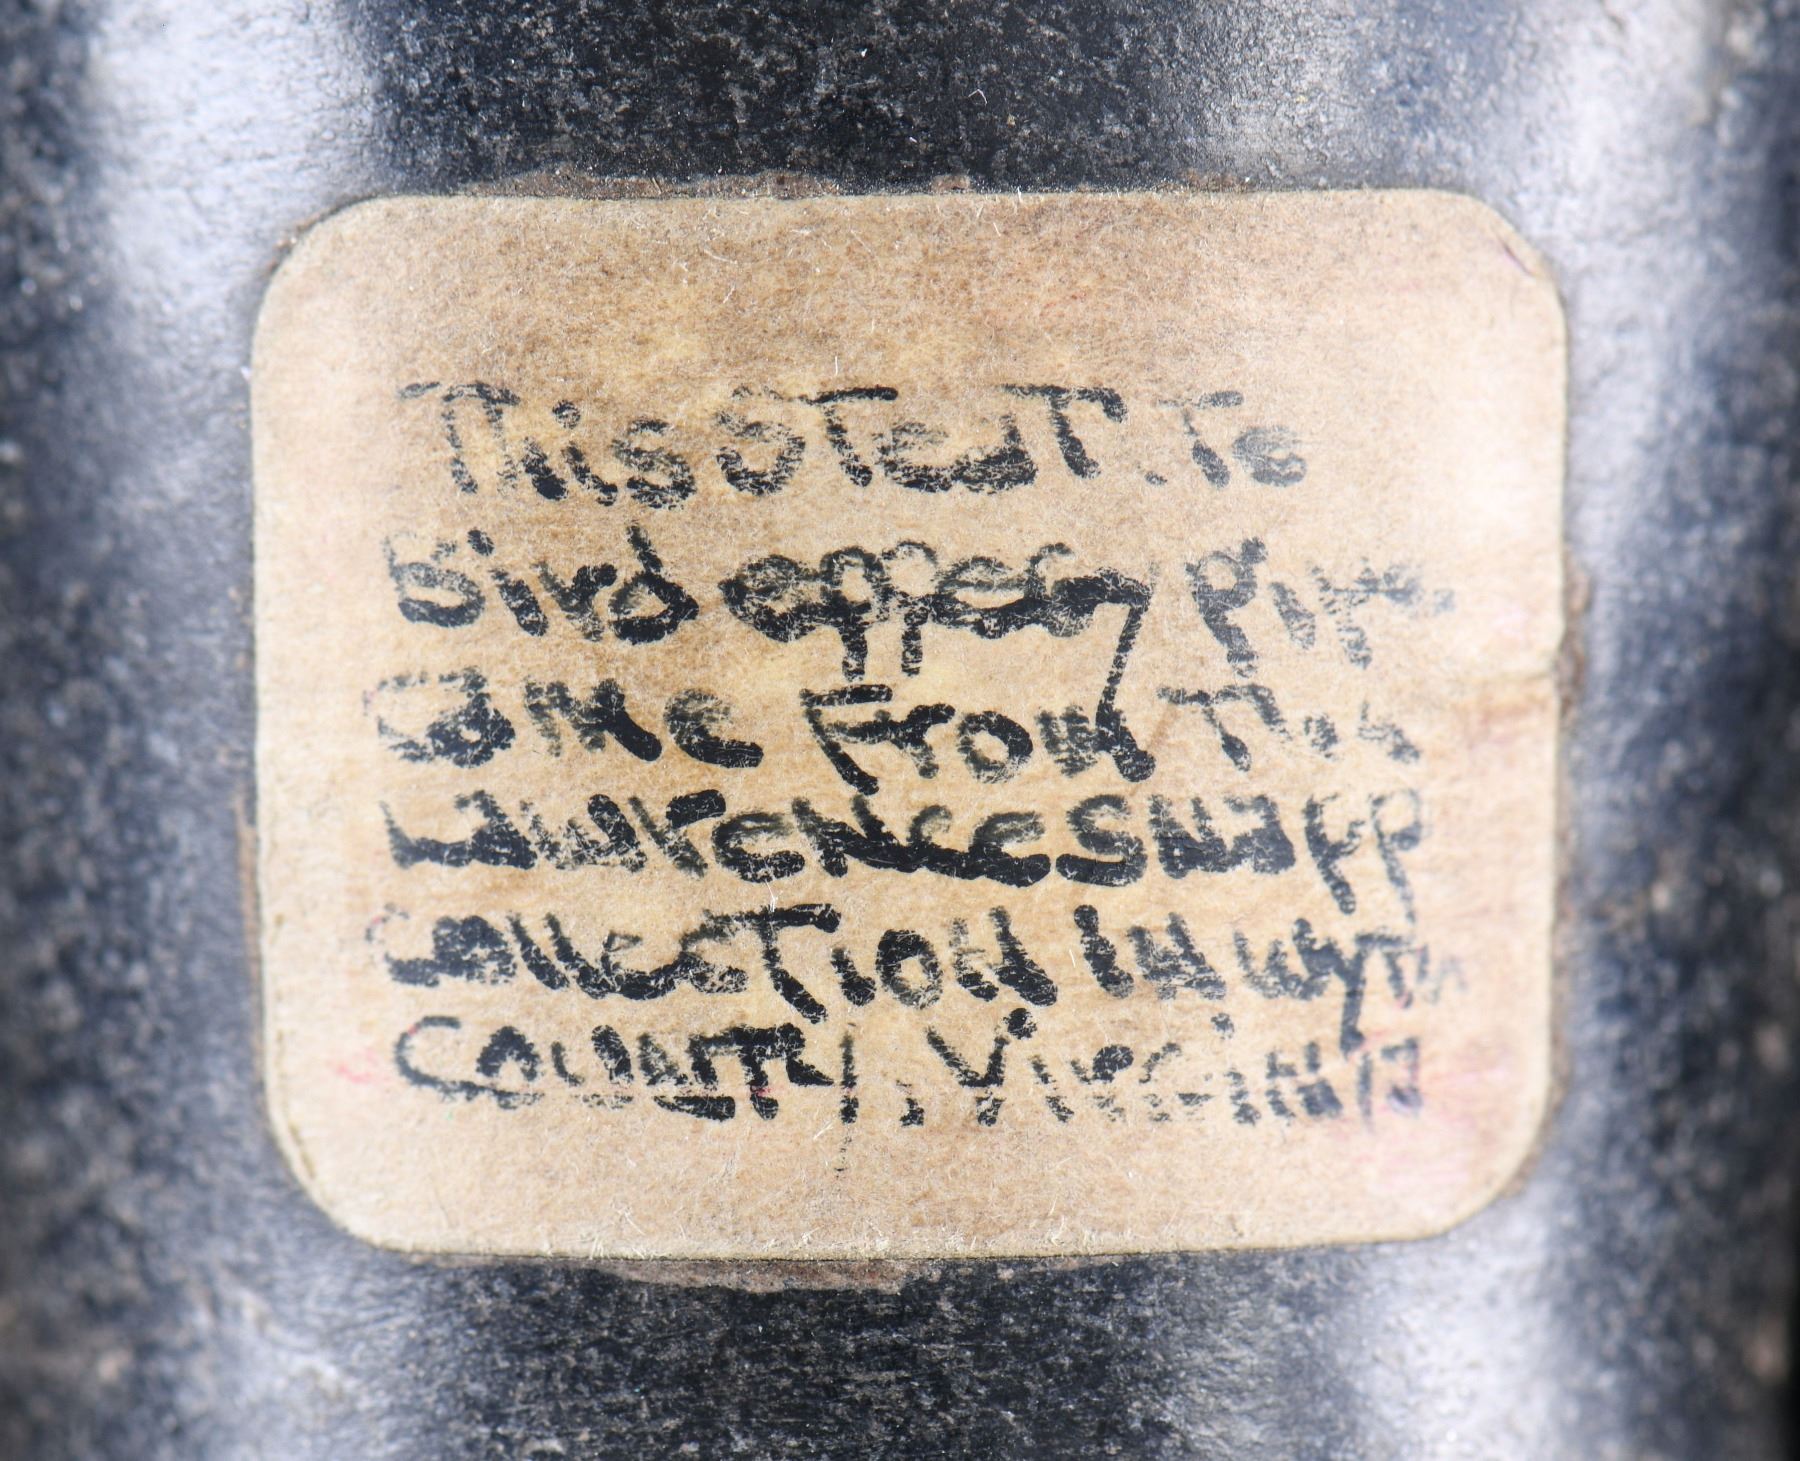 This SteaTiTe
Bird effegy Pipe
Came From The
Lawrence Snapp
Collection in Wyth
County, Virginia